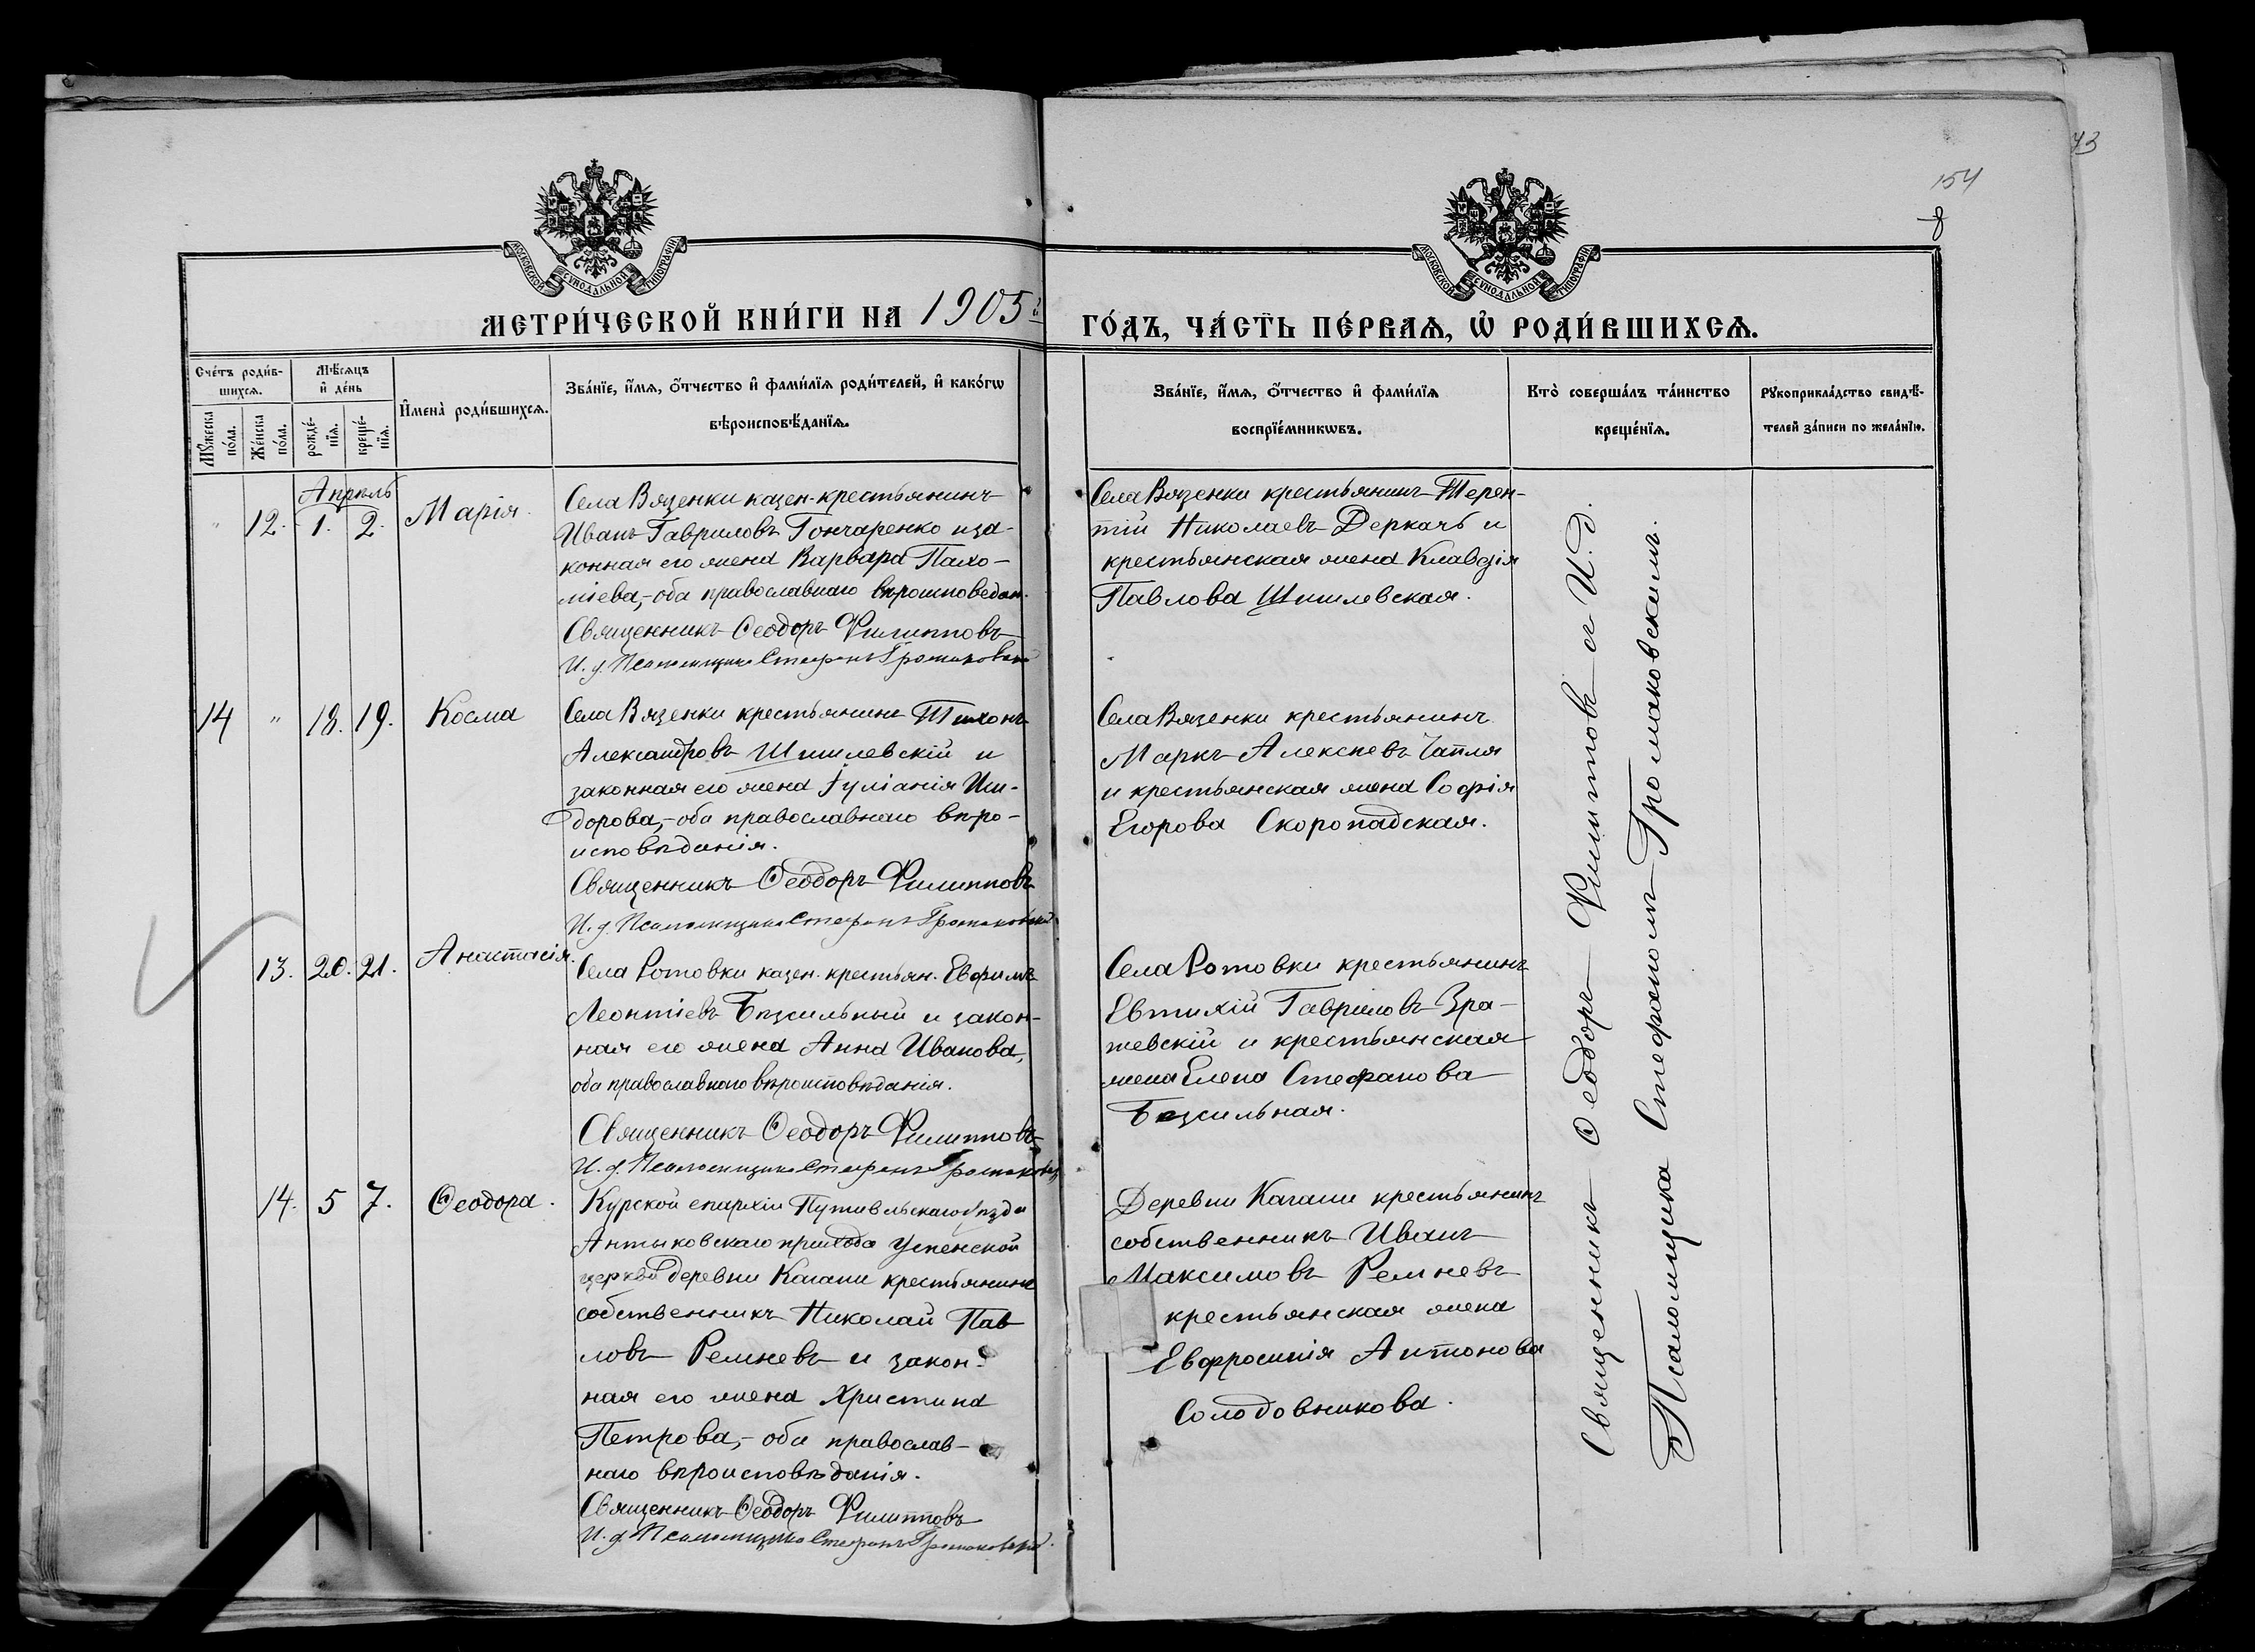 73
154
8
МОСКОВСКОЙ СѴНОДАЛЬНОЙ ТИПОГРАФІИ
МОСКОВСКОЙ СѴНОДАЛЬНОЙ ТИПОГРАФІИ
МЕТРИ́ЧЕСКОЙ КНИ́ГИ НА 1905й
ГО́ДЪ, ЧА́СТЬ ПЕ́РВАѦ, Ѡ҆ РОДИ́ВШИХСѦ.
Сче́тъ роди́в-
шихсѧ.
Мѣ́сѧцъ
и҆ де́нь
Мꙋ́жеска
по́ла.
Же́нска
по́ла.
рожде́-
нїѧ.
креще́-
нїѧ.
И҆мена̀ роди́вшихсѧ.
Зва́нїе, и҆́мѧ, ѻ҆́тчество и҆ фами́лїѧ роди́телей, и҆ како́гѡ
вѣроисповѣ́данїѧ.
Зва́нїе, и҆́мѧ, ѻ҆́тчество и҆ фами́лїѧ
воспрїе́мникѡвъ.
Кто̀ соверша́лъ та́инство
креще́нїѧ.
Рꙋкоприкла́дство свидѣ́-
телей за́писи по жела́нїю.
Апрѣль
" 12. 1. 2. Марія.
Села Вязенки казен. крестьянинъ
Иванъ Гавриловъ Гончаренко и за-
конная его жена Варвара Пахо-
міева,- оба православнаго вѣроисповедан.
Священникъ Ѳеодоръ Филипповъ
И. д. Псаломщика Стефанъ Громаковскій
Села Вязенки крестьянинъ Терен-
тій Николаевъ Деркачъ и
крестьянская жена Клавдія
Павлова Шишлевская.
14 " 18. 19. Косма
Села Вязенки крестьянинъ Тихонъ
Александровъ Шишлевскій и
законная его жена Іуліанія Иси-
дорова,- оба православнаго вѣро-
исповѣданія.
Священникъ Ѳеодоръ Филипповъ
И. д. Псаломщика Стефанъ Громаковскій
Села Вязенки крестьянинъ
Маркъ Алексѣевъ Чапля
и крестьянская жена Софія
Егорова Скоропадская.
13. 20. 21. Анастасія.
Села Ротовки казен. крестьян. Евфимъ
Леонтіевъ Безсильный и закон-
ная его жена Анна Иванова,
оба православнаго вѣроисповѣданія.
Священникъ Ѳеодоръ Филипповъ
И. д. Псаломщика Стефанъ Громаковск
Села Ротовки крестьянинъ
Евтихій Гавріиловъ Зра-
жевскій и крестьянская
жена Елена Стефанова
Безсильная.
14. 5 7. Ѳеодора.
Курской епархіи Путивльскаго уѣзда
Антыковскаго прихода Успенской
церкви деревни Кагани крестьянинъ
собственникъ Николай Пав
ловъ Ремневъ и закон-
ная его жена Христина
Петрова,- оба православ-
наго вѣроисповѣданія.
Священникъ Ѳеодоръ Филипповъ
И. д. Псаломщика Стефанъ Громаковскій.
Деревни Кагани крестьянинъ
собственникъ Иванъ
Максимовъ Ремневъ
крестьянская жена
Евфросинія Антонова
Солодовникова.
Священникъ Ѳеодоръ Филипповъ съ И. д.
Псаломщика Стефаномъ Громаковскимъ.